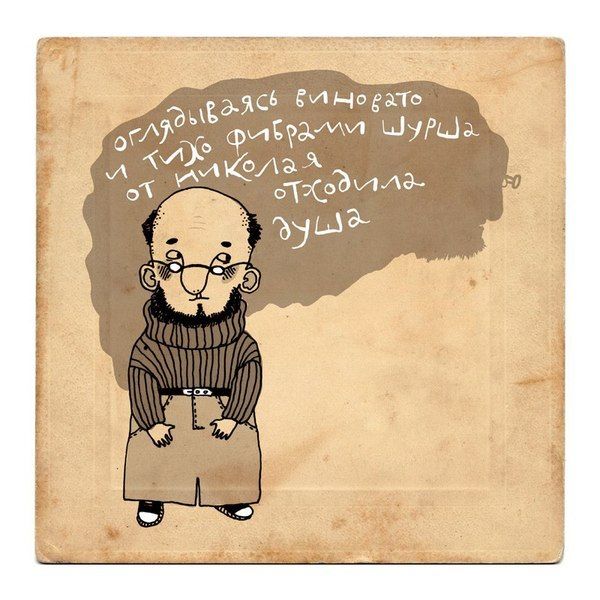 оглядываясь виновато
и тихо фибрами шурша
от николая
отходила
душа